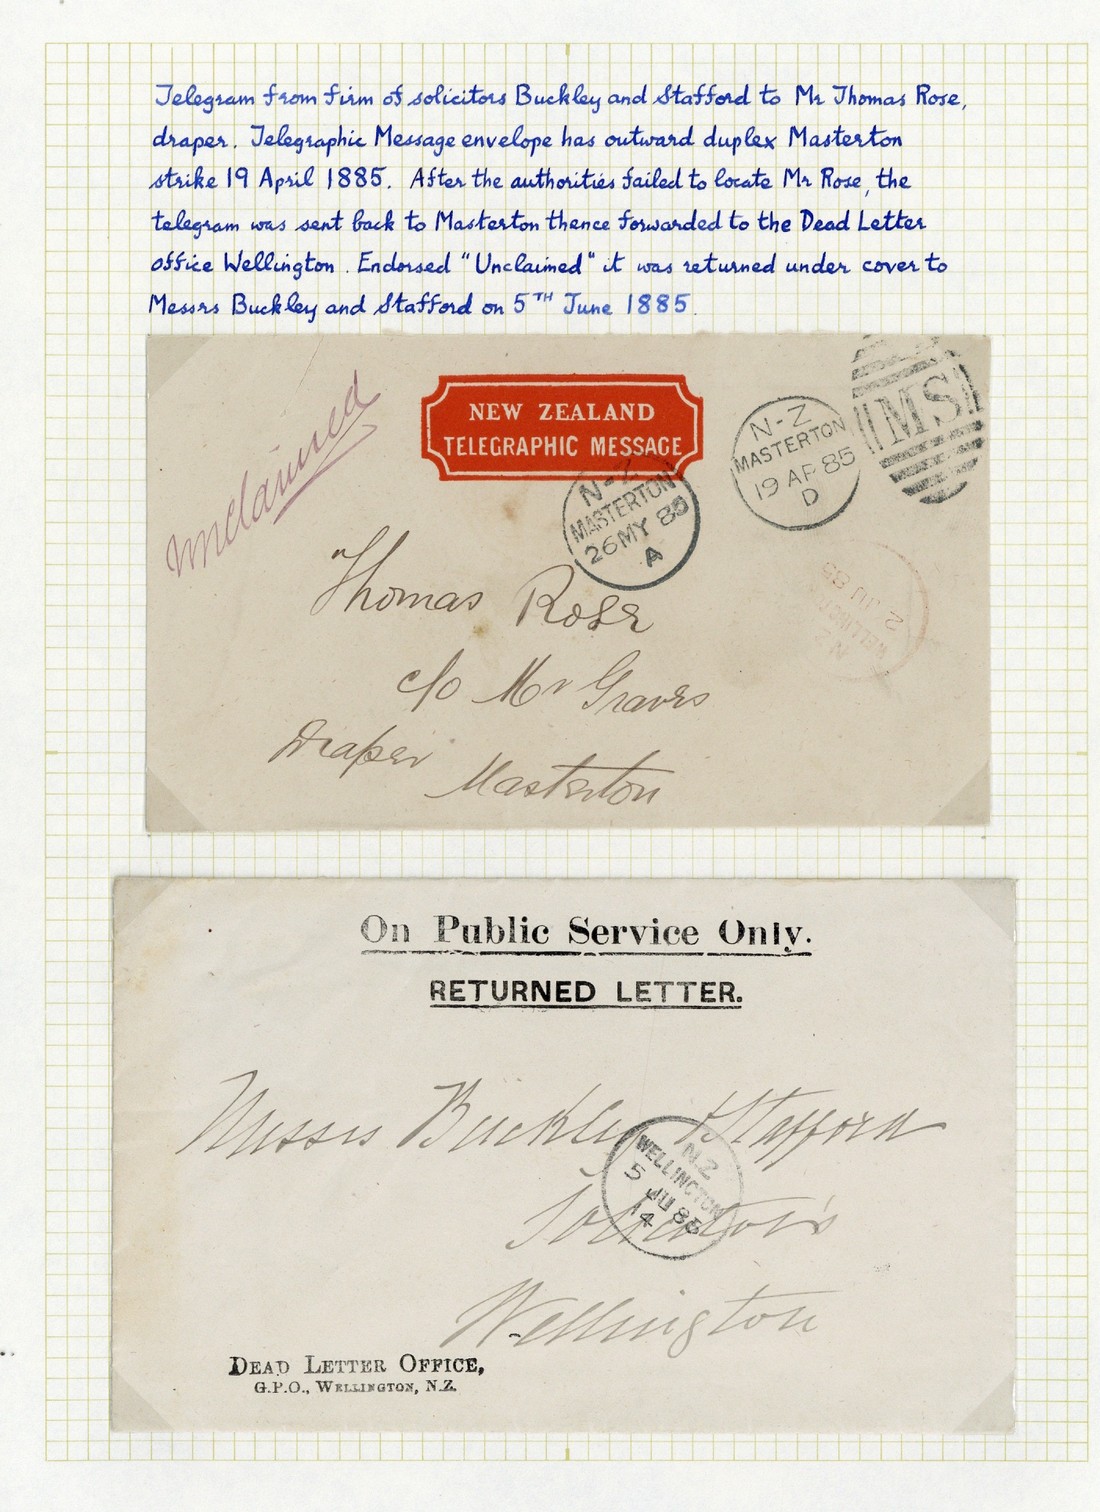 Telegram from firm of solicitors Buckley and Stafford to Mr Thomas Rose,
draper. Telegraphic Message envelope has outward duplex Masterton
strike 19 April 1885. After the authorities failed to locate Mr Rose, the
telegram was sent back to Masterton thence forwarded to the Dead Letter
office Wellington. Endorsed "Unclaimed" it was returned under cover to
Messrs Buckley and Stafford on 5TH June 1885.
Unclaimed
NEW ZEALAND
TELEGRAPHIC MESSAGE
N-Z
MASTERTON
19 AP 85
D
MS
N-Z
MASTERTON
26 MY 85
A
N Z
WELLINGTON
2 JU 85
Thomas Rose
c/o Mr Graves
Draper
Masterton
On Public Service Only.
RETURNED LETTER.
Messrs Buckley & Stafford
Solicitors
Wellington
N.Z
WELLINGTON
5 JU 85
14
DEAD LETTER OFFICE,
G.P.O., WELLINGTON, N.Z.